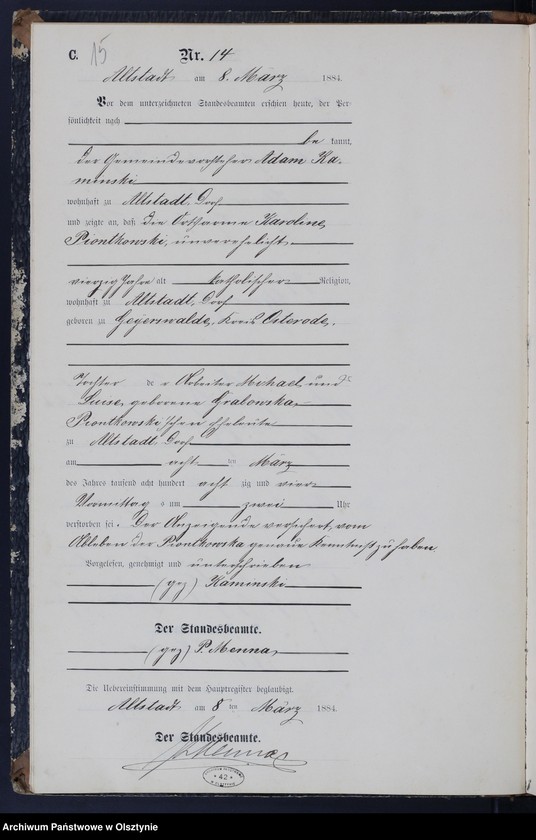 C. 15 Nr. 14
Altstadt am 8. März 1884.
Vor dem unterzeichneten Standesbeamten erschien heute, der Per-
sönlichkeit nach
be kannt,
der Gemeindevorsteher Adam Ka-
minski
wohnhaft zu Altstadt, Dorf
und zeigte an, daß die Ortsarme Karoline
Piontkowski, unverehelicht
vierzig Jahre alt katholischer Religion,
wohnhaft zu Altstadt, Dorf
geboren zu Geyerswalde, Kreis Osterode,
Tochter der Arbeiter Michael und
Luise, geborene Gralowska,
Piontkowski'schen Eheleute
zu Altstadt, Dorf
am acht ten März
des Jahres tausend acht hundert acht zig und vier
Vormittag s um zwei Uhr
verstorben sei. Der Anzeigende versichert, vom
Ableben der Piontkowska genaue Kenntniß zu haben.
Vorgelesen, genehmigt und unterschrieben
(gez) Kaminski
Der Standesbeamte.
(gez) P. Menna
Die Uebereinstimmung mit dem Hauptregister beglaubigt.
Altstadt am 8 ten März 1884.
Der Standesbeamte.
Menna
42
Archiwum Państwowe w Olsztynie